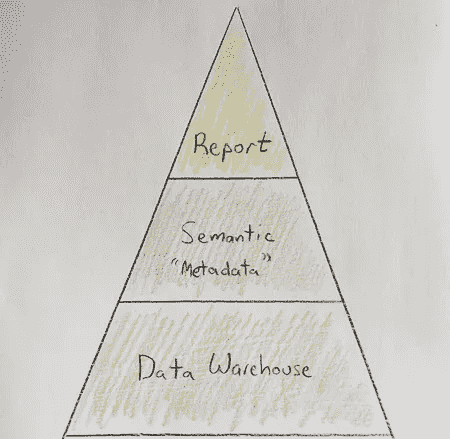 Report
Semantic
"Metadata"
Data Warehouse